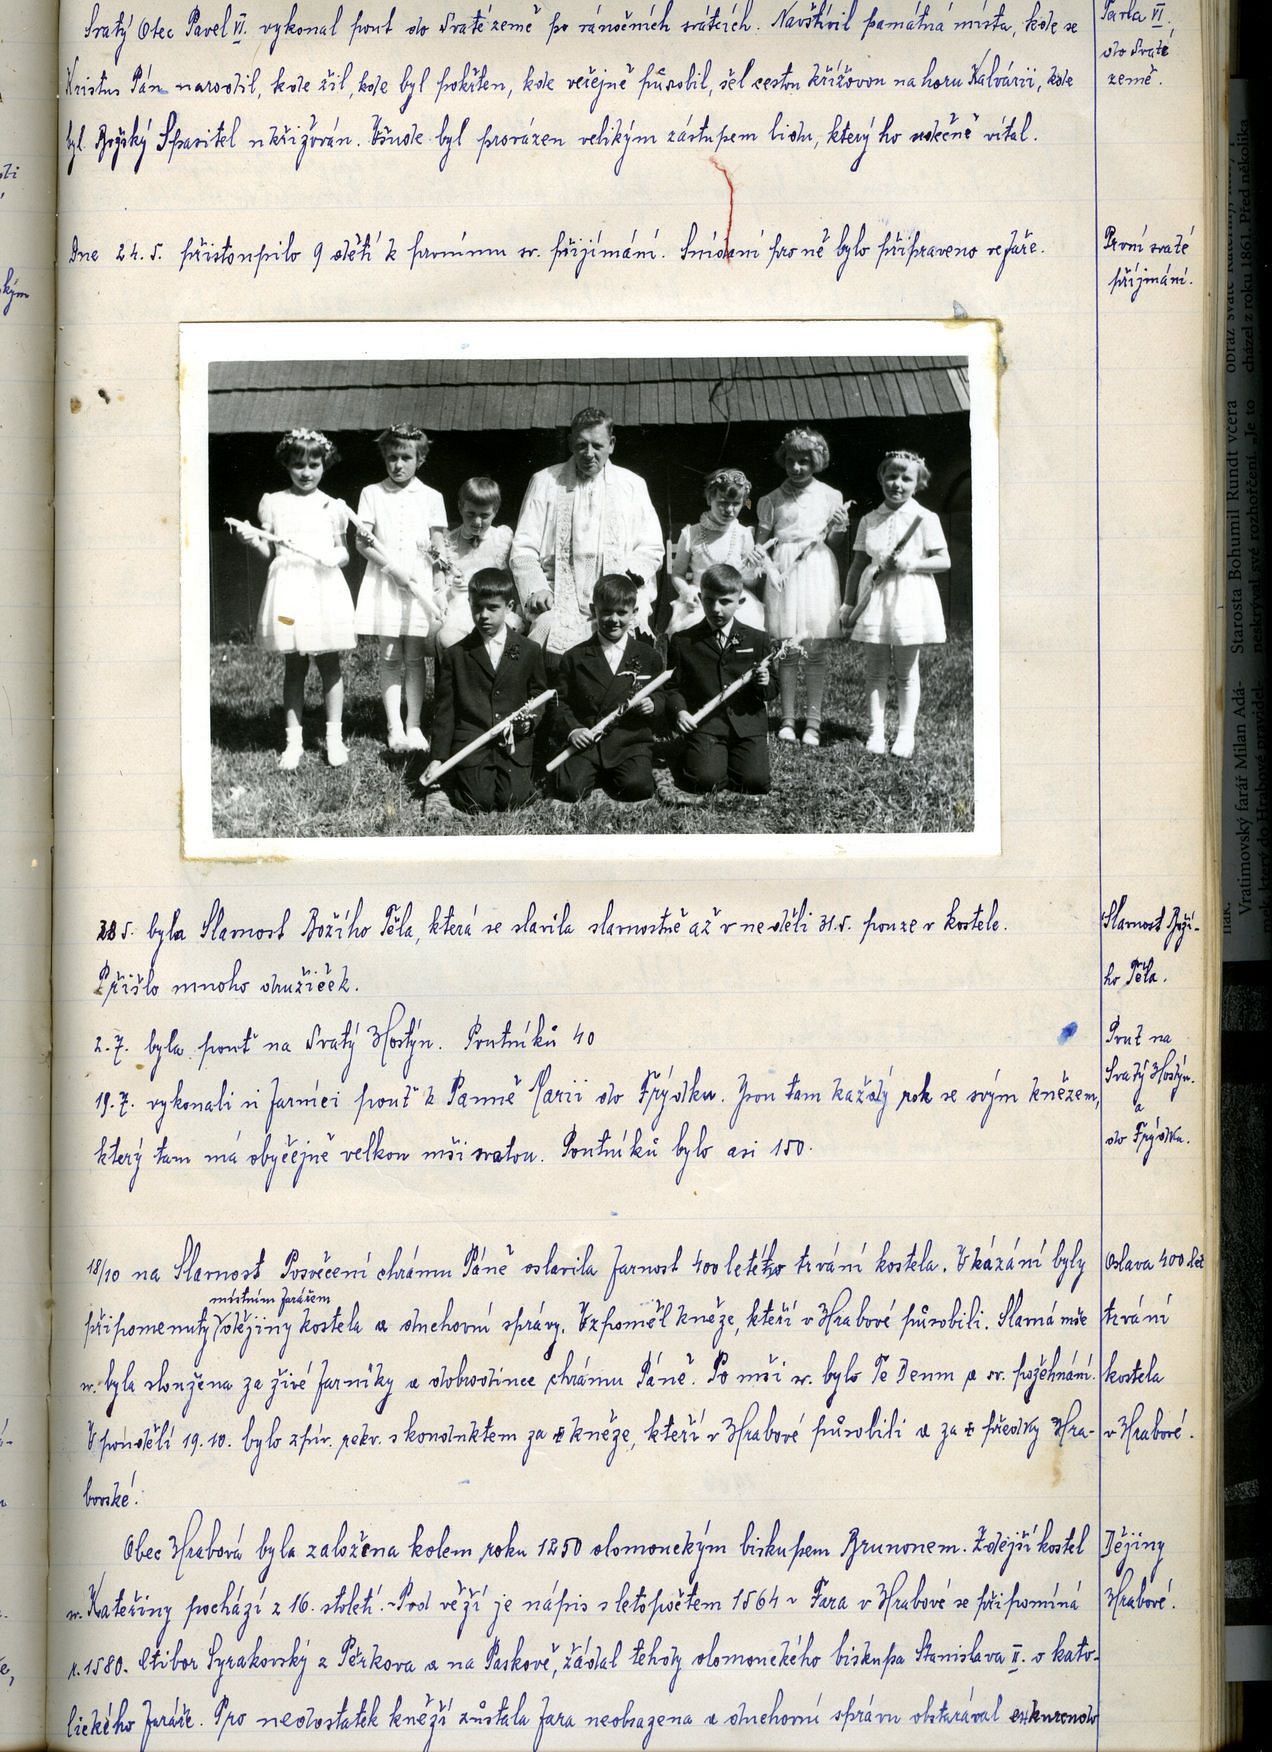 Svatý Otec Pavel VI. vykonal pouť do Svaté země po vánočních svátcích. Navštívil památná místa, kde se
Kristus Pán narodil, kde žil, kde byl pokřtěn, kde veřejně působil, šel cestou křížovou na horu Kalvárii, kde
byl Božský Spasitel ukřižován. Všude byl provázen velikým zástupem lidu, který ho vděčně vítal.
Pavla VI.
do Svaté
země.
Dne 24.5. přistoupilo 9 dětí k prvnímu sv. přijímání. Snídaní pro ně bylo připraveno ve faře.
První svaté
příjmání.
28 5. byla Slavnost Božího Těla, která se slavila slavnostně až v neděli 31.5. pouze v kostele.
Přišlo mnoho družiček.
Slavnost Boží-
ho Těla.
2.7. byla pouť na Svatý Hostýn. Poutníků 40
19.7. vykonali si farníci pouť k Panně Marii do Frýdku. Jsou tam každý rok se svým knězem,
který tam má obyčejně velkou mši svatou. Poutníků bylo asi 150.
Pouť na
Svatý Hostýn.
a
do Frýdku.
18/10 na Slavnost Posvěcení chrámu Páně oslavila farnost 400 letého trvání kostela. V kázání byly
místním farářem
připomenuty dějiny kostela a duchovní správy. Vzpoměl kněze, kteří v Hrabové působili. Slavná mše
sv. byla sloužena za živé farníky a dobrodince chrámu Páně. Po mši sv. bylo Te Deum a sv. požehnání.
V pondělí 19.10. bylo zpív. rekv. s konduktem za + kněze, kteří v Hrabové působili a za + předky Hra-
bovské.
Oslava 400 let
trvání
kostela
v Hrabové.
Obec Hrabová byla založena kolem roku 1250 olomouckým biskupem Brunonem. Zdejší kostel
sv. Kateřiny pochází z 16. století. Pod věží je nápis s letopočtem 1564. Fara v Hrabové se připomíná
r. 1580. Ctibor Syrakovský z Pěrkova a na Paskově, žádal tehdy olomouckého biskupa Stanislava II. o kato-
lického faráře. Pro nedostatek kněží zůstala fara neobsazena a duchovní správu obstarával exkurendo
Dějiny
Hrabové.
Starosta Bohumil Rundt včera
neskrýval své rozhořčení. „Je to
Vratimovský farář Milan Adá-
cházel z roku 1861. Před několika